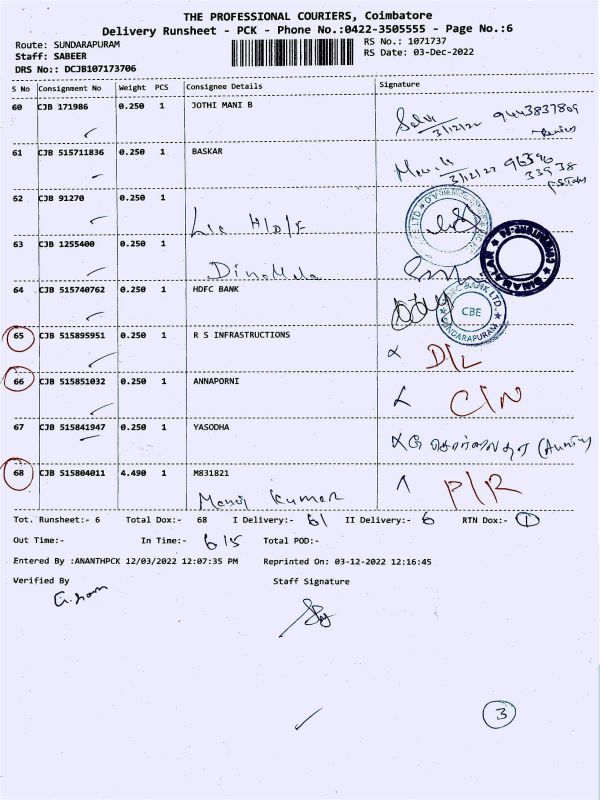 THE PROFESSIONAL COURIERS, Coimbatore
Delivery Runsheet - PCK - Phone No.:0422-3505555 - Page No.:6
Route: SUNDARAPURAM
RS No.: 1071737
Staff: SABEER
RS Date: 03-Dec-2022
DRS No:: DCJB107173706
S No Consignment No Weight PCS Consignee Details Signature
60 CJB 171986 0.250 1 JOTHI MANI B
3/12/22 9443837809
61 CJB 515711836 0.250 1 BASKAR
3/12/22 96396
33938
62 CJB 91270 0.250 1
Lic H10/F
63 CJB 1255400 0.250 1
DINAMALAR
64 CJB 515740762 0.250 1 HDFC BANK
BANK LTD.
CBE
SUNDARAPURAM
65 CJB 515895951 0.250 1 R S INFRASTRUCTIONS
D/L
66 CJB 515851032 0.250 1 ANNAPORNI
C/N
67 CJB 515841947 0.250 1 YASODHA
68 CJB 515804011 4.490 1 M831821
Manoj Kumar P/R
Tot. Runsheet:- 6 Total Dox:- 68 I Delivery:- 61 II Delivery:- 6 RTN Dox:- 1
Out Time:- In Time:- 615 Total POD:-
Entered By :ANANTHPCK 12/03/2022 12:07:35 PM Reprinted On: 03-12-2022 12:16:45
Verified By Staff Signature
3